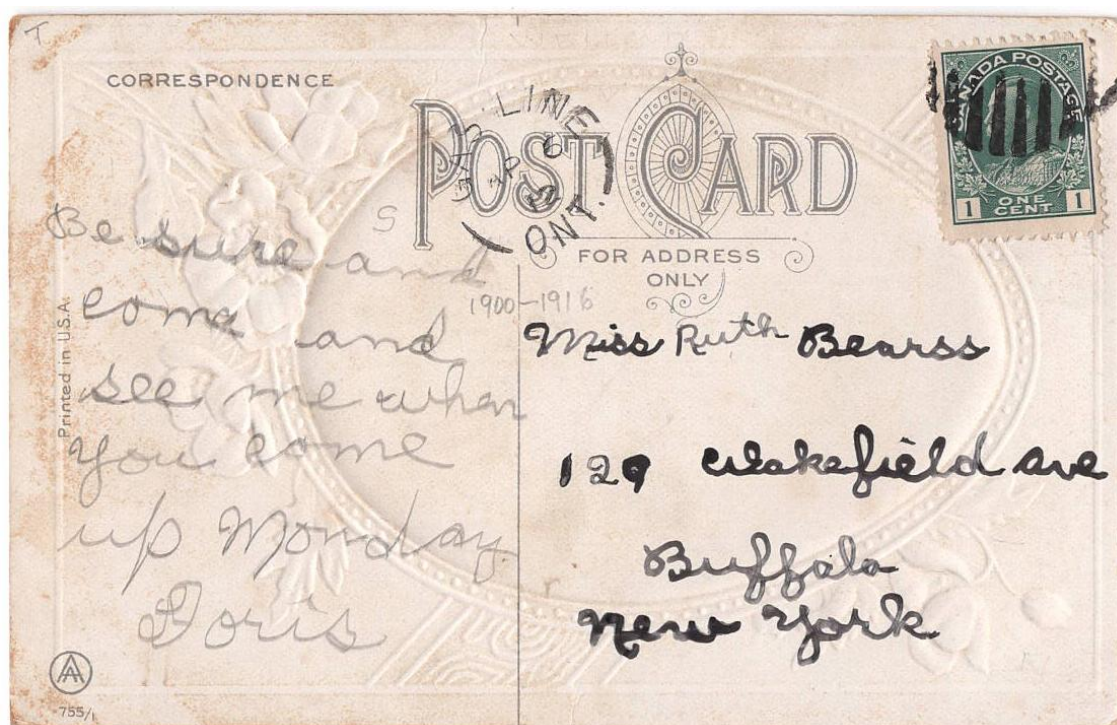 T
CORRESPONDENCE
POST CARD
LINE
AP 6
ONT.
FOR ADDRESS
ONLY
CANADA POSTAGE
1 ONE CENT 1
S
Be sure and
come and
see me when
you come
up Monday
Doris
1900-1916
Miss Ruth Bearss
129 Wakefield ave
Buffalo
New York
Printed in U.S.A.
AA
755/1